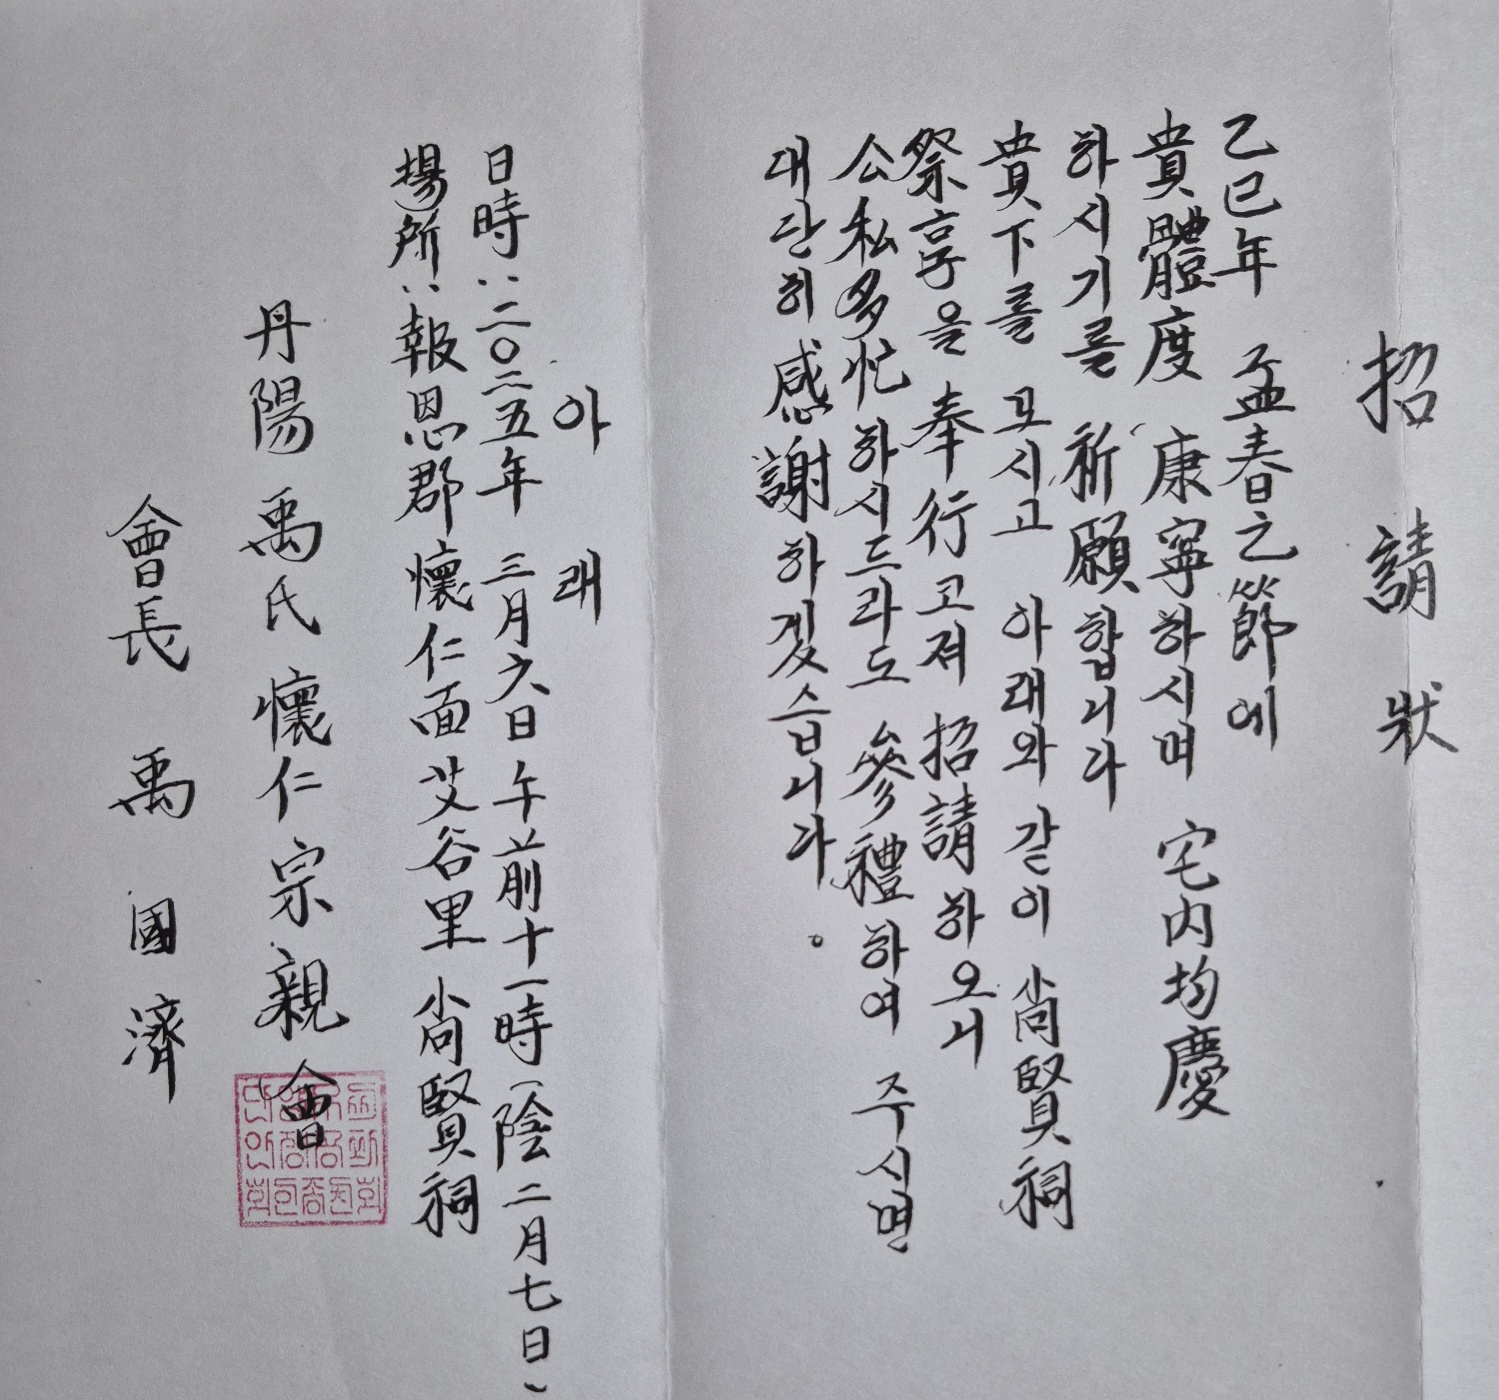 招請狀
乙巳年 孟春之節에
貴體度 康寧하시며 宅内均慶
하시기를 祈願합니다
貴下를 모시고 아래와 같이 尙賢祠
祭享을 奉行고져 招請하오니
公私多忙하시드라도 參禮하여 주시면
대단히 感謝하겠습니다。
아래
日時:二〇二五年 三月六日 午前十一時(陰二月七日)
場所:報恩郡 懷仁面 艾谷里 尙賢祠
丹陽禹氏懷仁宗親會
會長 禹國濟